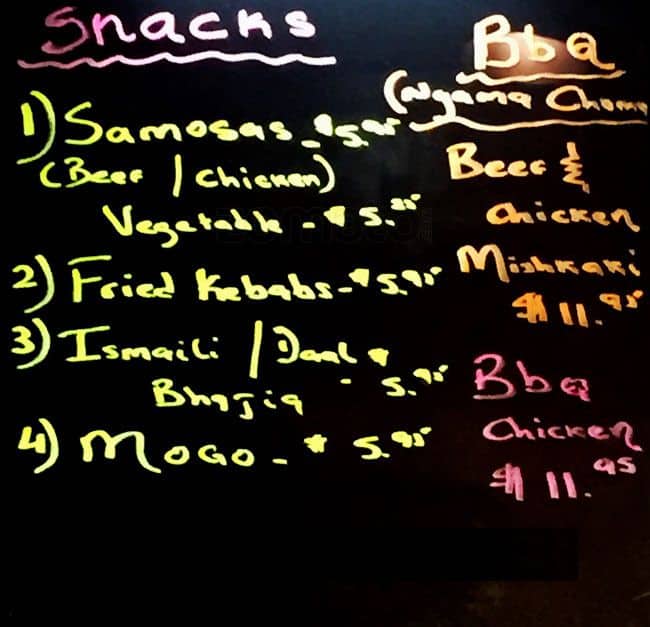 Snacks
1) Samosas - $5.95
(Beef / Chicken)
Vegetable - $5.25
2) Fried Kebabs - $5.95
3) Ismaili / Daal
Bhajia - 5.95
4) MOGO - $5.95
BbQ
(Nyama Choma
Beef &
Chicken
Mishkaki
$11.95
BbQ
Chicken
$11.95